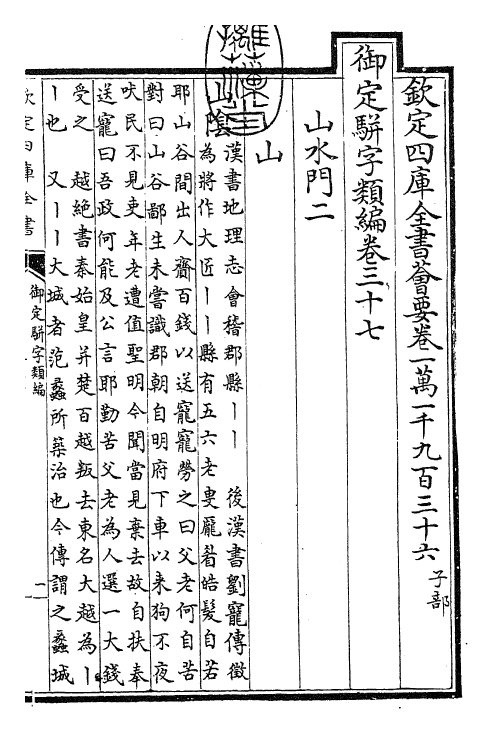 欽定四庫全書薈要卷一萬一千九百三十六 子部
御定駢字類編卷三十七
山水門二
山
山陰 漢書地理志會稽郡縣丨丨 後漢書劉寵傳徵
為將作大匠丨丨縣有五六老叟龎眉皓髮自若
耶山谷間出人齎百錢以送寵寵勞之曰父老何自苦
對曰山谷鄙生未嘗識郡朝自明府下車以来狗不夜
吠民不見吏年老遭值聖明今聞當見棄去故自扶奉
送寵曰吾政何能及公言耶勤苦父老為人選一大錢
受之 越絶書秦始皇并楚百越叛去東名大越為丨
丨也 又丨丨大城者范蠡所築治也今傳謂之蠡城
欽定四庫全書
御定駢字類編
一